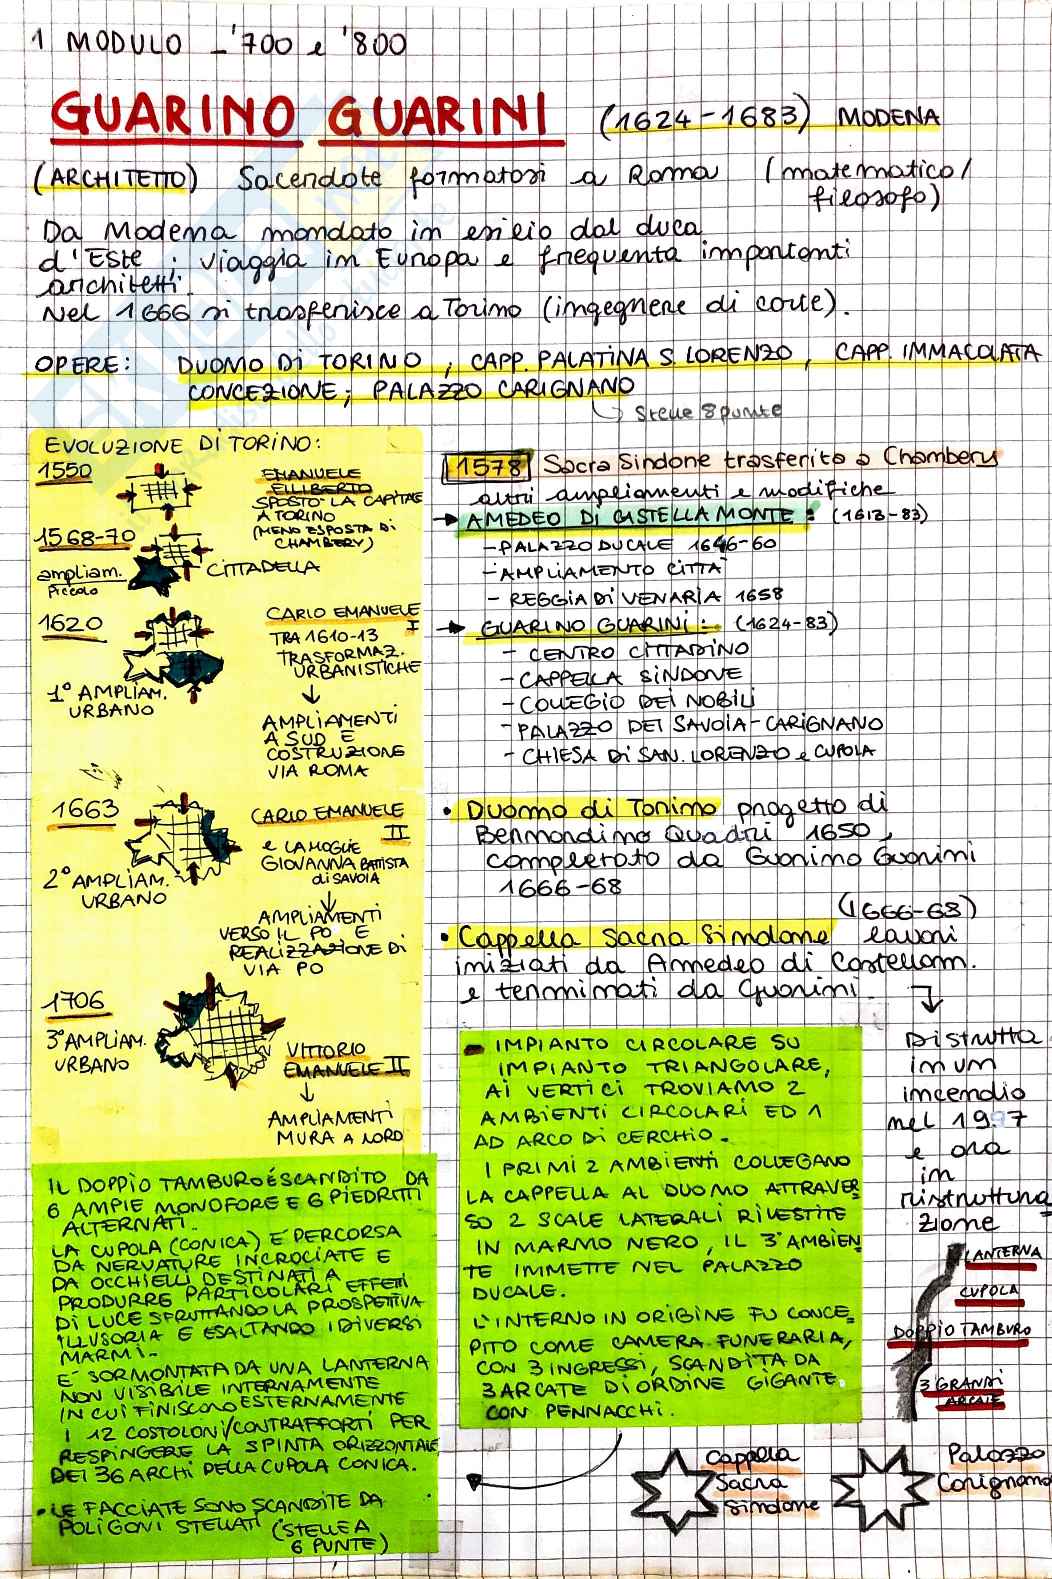 1 MODULO - '700 e '800
GUARINO GUARINI (1624-1683) MODENA
(ARCHITETTO) Sacerdote formatosi a Roma (matematico/
filosofo)
Da Modena mandato in esilio dal duca
d'Este ; viaggia in Europa e frequenta importanti
architetti.
Nel 1666 si trasferisce a Torino (ingegnere di corte).
OPERE: DUOMO DI TORINO ; CAPP. PALATINA S. LORENZO , CAPP. IMMACOLATA
CONCEZIONE; PALAZZO CARIGNANO
Stelle 8 punte
EVOLUZIONE DI TORINO:
1550
EMANUELE
FILIBERTO
SPOSTO' LA CAPITALE
A TORINO
(MENO ESPOSTA DI
CHAMBERY)
1568-70
ampliam.
Piccolo
CITTADELLA
1620
1° AMPLIAM.
URBANO
CARLO EMANUELE
I
TRA 1610-13
TRASFORMAZ.
URBANISTICHE
↓
AMPLIAMENTI
A SUD E
COSTRUZIONE
VIA ROMA
1663
2° AMPLIAM.
URBANO
CARLO EMANUELE
II
e LA MOGLIE
GIOVANNA BATTISTA
di SAVOIA
↓
AMPLIAMENTI
VERSO IL PO E
REALIZZAZIONE DI
VIA PO
1706
3° AMPLIAM.
URBANO
VITTORIO
EMANUELE II
↓
AMPLIAMENTI
MURA A NORD
1578 Sacra Sindone trasferito a Chambery
altri ampliamenti e modifiche
→ AMEDEO DI CASTELLAMONTE : (1613-83)
- PALAZZO DUCALE 1646-60
- AMPLIAMENTO CITTÀ
- REGGIA DI VENARIA 1658
→ GUARINO GUARINI : (1624-83)
- CENTRO CITTADINO
- CAPPELLA SINDONE
- COLLEGIO DEI NOBILI
- PALAZZO DEI SAVOIA-CARIGNANO
- CHIESA DI SAN. LORENZO e CUPOLA
• Duomo di Torino progetto di
Bernardino Quadri 1650,
completato da Guarino Guarini
1666-68
(1666-68)
• Cappella Sacra Sindone lavori
iniziati da Amedeo di Castellam.
e terminati da Guarini.
Distrutta
in un
incendio
nel 1997
e ora
in
ristruttura
zione
- IMPIANTO CIRCOLARE SU
IMPIANTO TRIANGOLARE,
AI VERTICI TROVIAMO 2
AMBIENTI CIRCOLARI ED 1
AD ARCO DI CERCHIO.
I PRIMI 2 AMBIENTI COLLEGANO
LA CAPPELLA AL DUOMO ATTRAVER
SO 2 SCALE LATERALI RIVESTITE
IN MARMO NERO, IL 3° AMBIEN
TE IMMETTE NEL PALAZZO
DUCALE.
L'INTERNO IN ORIGINE FU CONCE
PITO COME CAMERA FUNERARIA,
CON 3 INGRESSI, SCANDITA DA
3 ARCATE DI ORDINE GIGANTE
CON PENNACCHI.
IL DOPPIO TAMBURO É SCANDITO DA
6 AMPIE MONOFORE E 6 PIEDRITTI
ALTERNATI.
LA CUPOLA (CONICA) E' PERCORSA
DA NERVATURE INCROCIATE E
DA OCCHIELLI DESTINATI A
PRODURRE PARTICOLARI EFFETTI
DI LUCE SFRUTTANDO LA PROSPETTIVA
ILLUSORIA E ESALTANDO I DIVERSI
MARMI.
E' SORMONTATA DA UNA LANTERNA
NON VISIBILE INTERNAMENTE
IN CUI FINISCONO ESTERNAMENTE
I 12 COSTOLONI/CONTRAFFORTI PER
RESPINGERE LA SPINTA ORIZZONTALE
DEI 36 ARCHI DELLA CUPOLA CONICA.
• LE FACCIATE SONO SCANDITE DA
POLIGONI STELLATI (STELLE A
6 PUNTE)
LANTERNA
CUPOLA
DOPPIO TAMBURO
3 GRANDI
ARCATE
Cappella
Sacra
Sindone
Palazzo
Carignano